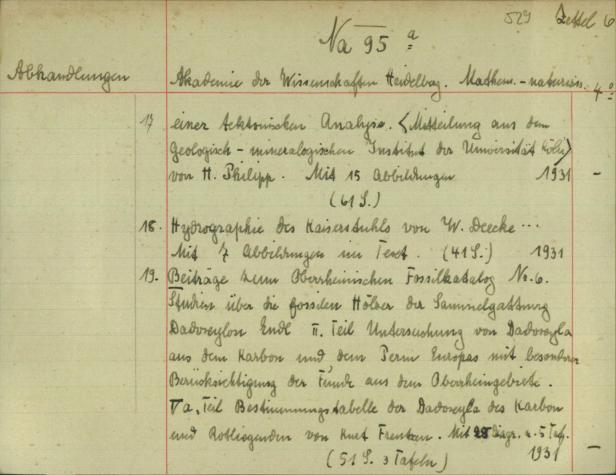 529 Zettel 6
Na 95 a
Abhandlungen
Akademie der Wissenschaften Heidelbg. Mathem.-naturwiss. 4°
17 einer tektonischen Analyse. (Mitteilung aus dem
Geologisch-mineralogischen Institut der Universität Köln)
von H. Philipp. Mit 15 Abbildungen 1931 -
(61 S.)
18. Hydrographie des Kaiserstuhls von W. Deecke...
Mit 7 Abbildungen im Text. (41 S.) 1931
19. Beiträge zum Oberrheinischen Fossilkatalog Nr. 6.
Studien über die fossilen Hölzer der Sammelgattung
Dadoxylon Endl II. Teil Untersuchung von Dadoxyla
aus dem Karbon und dem Perm Europas mit besonderer
Berücksichtigung der Funde aus dem Oberrheingebiete.
Va. Teil Bestimmungstabelle der Dadoxyla des Karbon
und Rotliegenden von Kurt Frentzen. Mit 28 Diagr. u. 5 Taf.
(51 S. 3 Tafeln) 1931 -